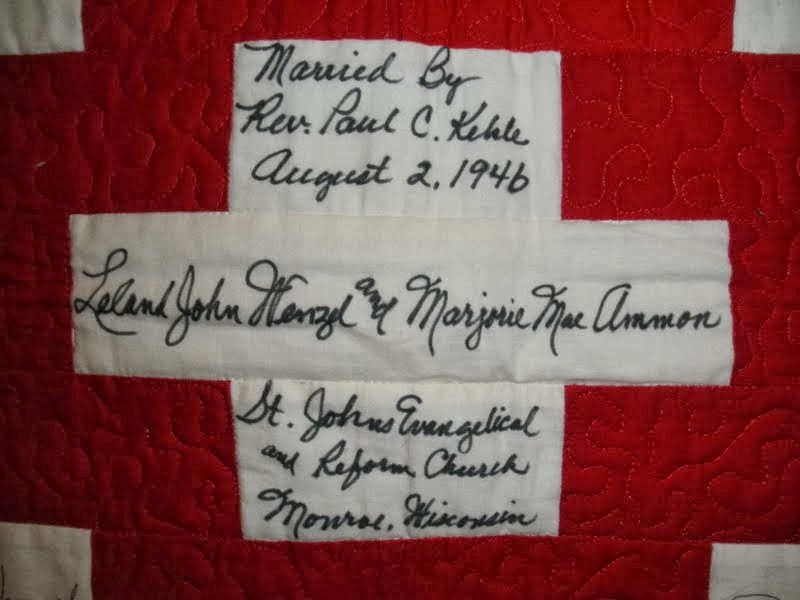 Married By
Rev. Paul C. Kehle
August 2, 1946
Leland John Wenzel and Marjorie Mae Ammon
St. Johns Evangelical
and Reform Church
Monroe, Wisconsin